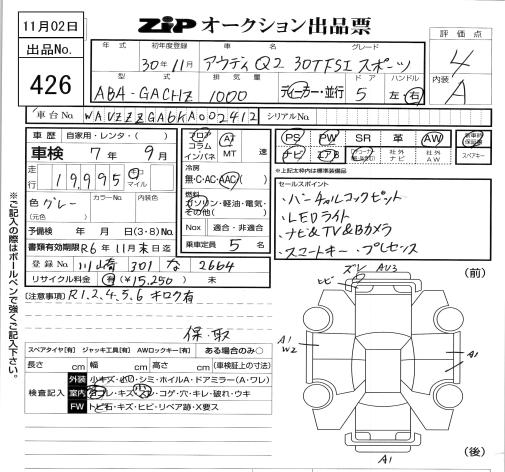 11月02日
ZIP オークション出品票
出品No.
426
年式 初年度登録 車名 グレード
30年11月 アウディ Q2 30TFSI スポーツ
型式 排気量 ドア ハンドル
ABA-GACHZ 1000 ディーラー・並行 5 左・右
評価点
4
内装
A
車台No. WAUZZZGA6KA002412 シリアルNo.
車歴 自家用・レンタ・( )
車検 7年 9月
走行 19,995 キロ マイル
色 グレー カラーNo. 内装色
(元色)
予備検 年 月 日 (3・8)No.
書類有効期限 R6年 11月 末日迄
登録No. 川崎 301 な 2664
リサイクル料金 有 (¥15,250) 未
フロア コラム インパネ AT MT 速
冷房
無・C・AC・AAC
燃料
ガソリン・軽油・電気・その他( )
Nox 適合・非適合
乗車定員 5 名
PS PW SR 革 AW
ナビ エアB 社外ナビ 社外AW
スペアキー
※上記太枠内は標準装備品
セールスポイント
・バーチャルコックピット
・LEDライト
・ナビ&TV&Bカメラ
・スマートキー ・プレセンス
[注意事項] R1.2.4.5.6 キロク有
保・取
スペアタイヤ[有] ジャッキ工具[有] AWロックキー[有] ある場合のみ○
長さ cm 幅 cm 高さ cm (車検証上の寸法)
検査記入
外装 小キズ・凹・シミ・ホイルA・ドアミラー(A・ワレ)
室内 ヨゴレ・キズ・スレ・コゲ・穴・キレ・破れ・ウキ
FW トビ石・キズ・ヒビ・リペア跡・X要ス
※ご記入の際はボールペンで強くご記入下さい。
(前)
ズレ AU3
ヒビ
A1
W2
A1
A1
(後)